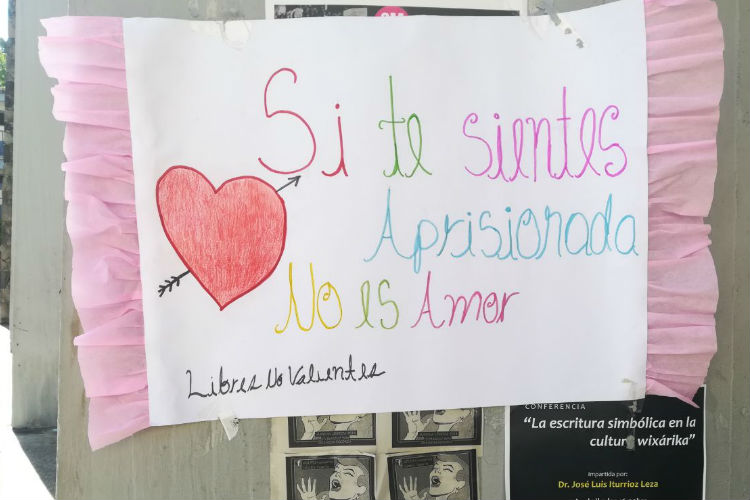 Si te sientes
Aprisionada
No es Amor
Libres No Valientes
CONFERENCIA
“La escritura simbólica en la
cultura wixárika”
Impartida por:
Dr. José Luis Iturrioz Leza